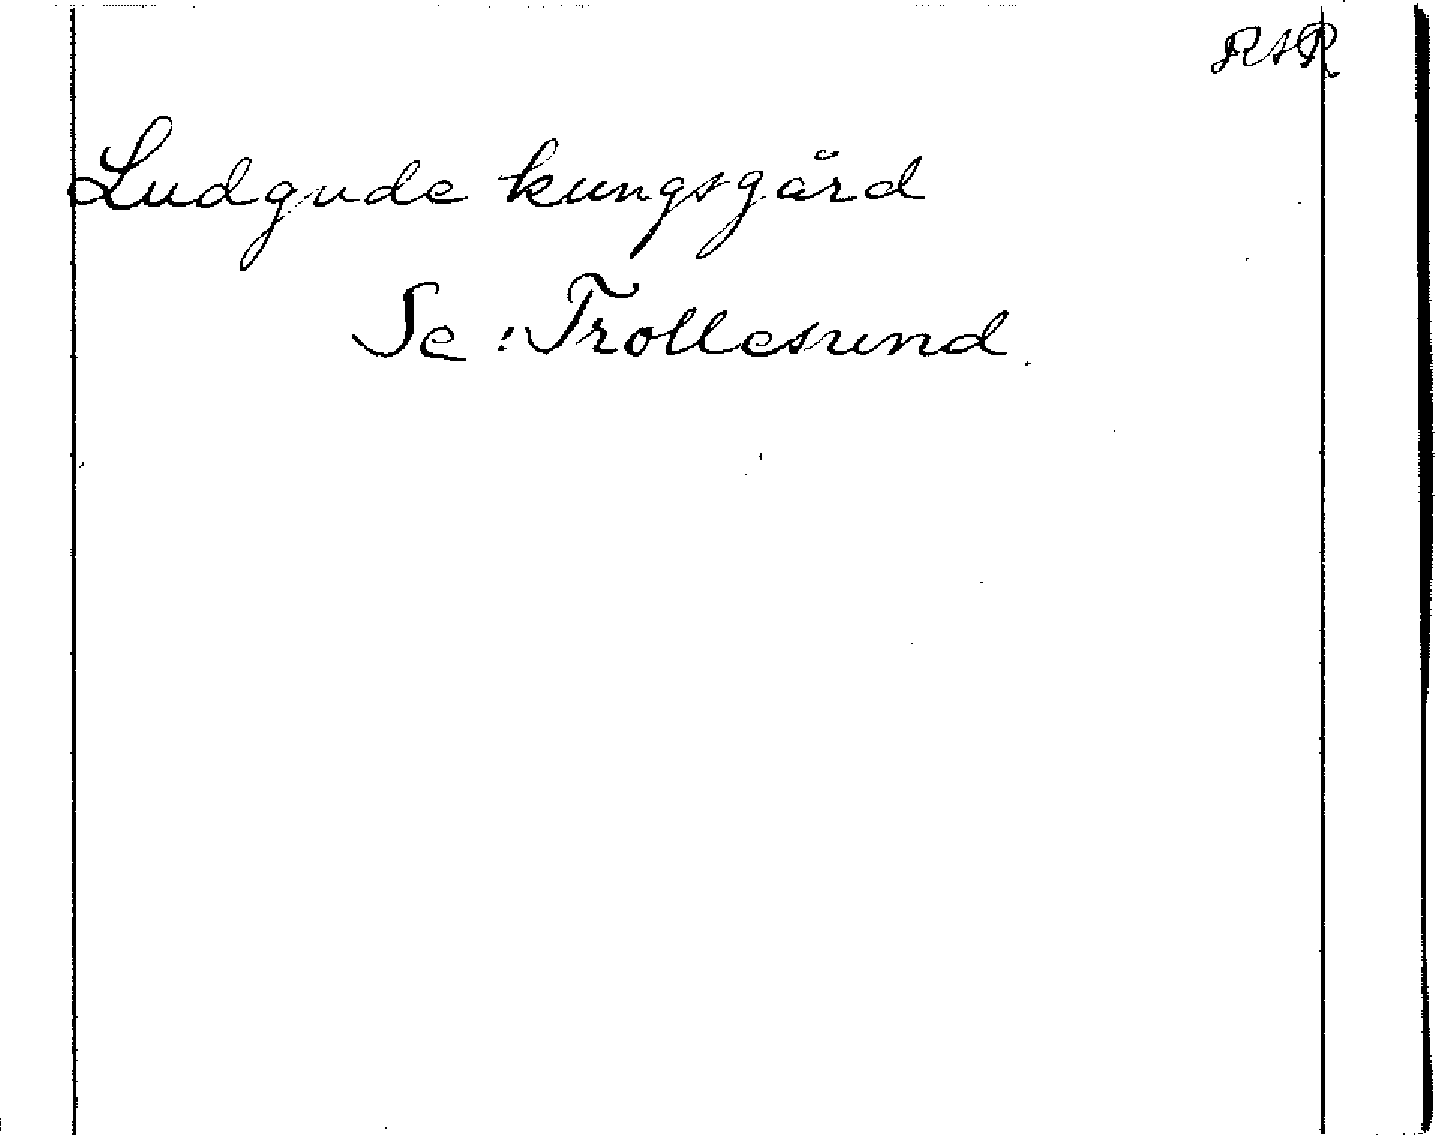 RSR
Ludgude kungsgård
Se: Trollesund.